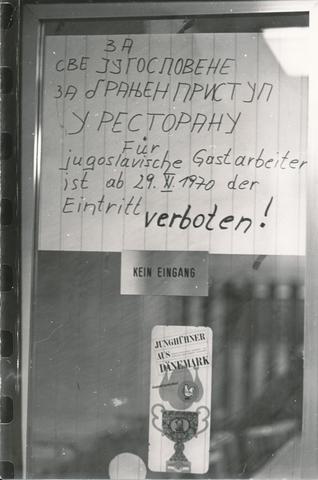 ЗА
СВЕ ЈУГОСЛОВЕНЕ
ЗАБРАЊЕН ПРИСТУП
У РЕСТОРАНУ
Für
jugoslavische Gastarbeiter
ist ab 29. XI. 1970 der
Eintritt verboten!
KEIN EINGANG
JUNGHÜHNER
AUS
DÄNEMARK